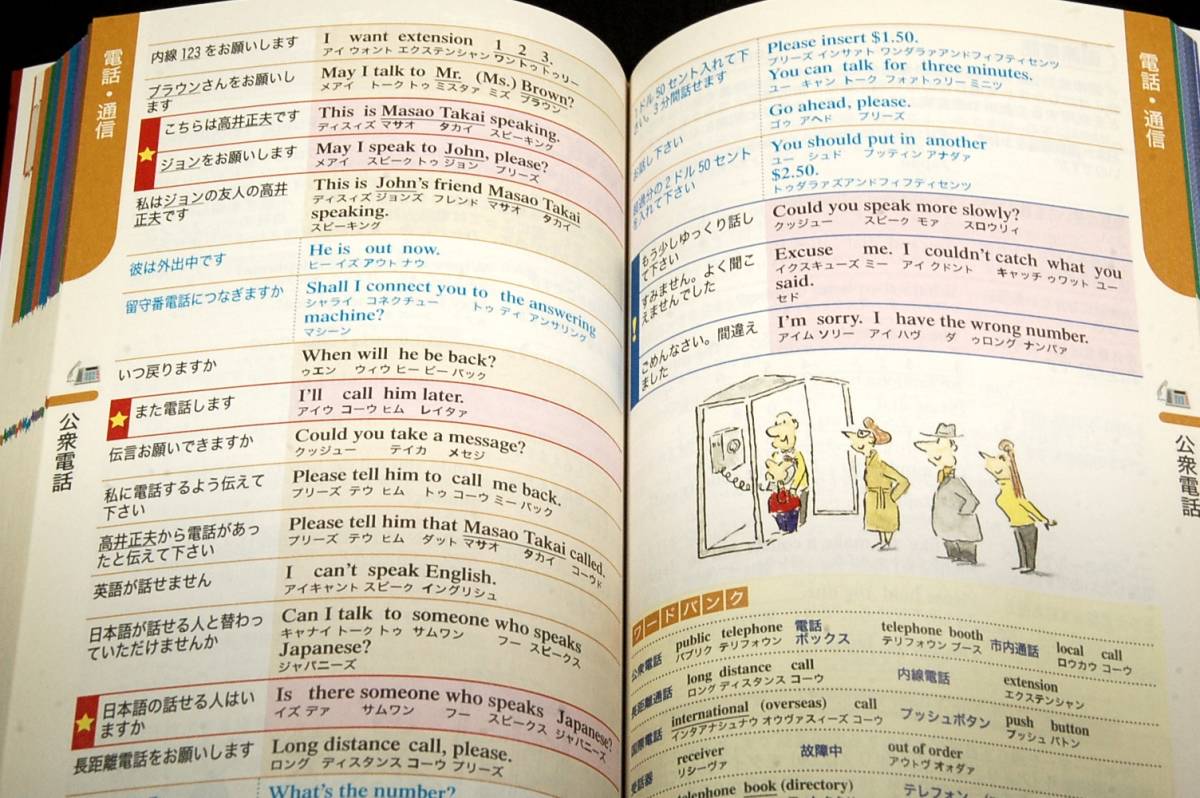 電話・通信
公衆電話
内線 123 をお願いします
I want extension 1 2 3.
アイ ウォント エクステンシャン ワン トゥ トゥリー
ブラウンさんをお願いし
ます
May I talk to Mr. (Ms.) Brown?
メアイ トーク トゥ ミスタァ ミズ ブラウン
こちらは高井正夫です
This is Masao Takai speaking.
ディスィズ マサオ タカイ スピーキング
ジョンをお願いします
May I speak to John, please?
メアイ スピーク トゥ ジョン プリーズ
私はジョンの友人の高井
正夫です
This is John's friend Masao Takai
ディスィズ ジョンズ フレンド マサオ タカイ
speaking.
スピーキング
彼は外出中です
He is out now.
ヒー イズ アウト ナウ
留守番電話につなぎますか
Shall I connect you to the answering
シャライ コネクチュー トゥ ディ アンサリング
machine?
マシーン
いつ戻りますか
When will he be back?
ゥエン ウィウ ヒー ビー バック
また電話します
I'll call him later.
アイウ コーウ ヒム レイタァ
伝言お願いできますか
Could you take a message?
クッジュー テイカ メセジ
私に電話するよう伝えて
下さい
Please tell him to call me back.
プリーズ テウ ヒム トゥ コーウ ミー バック
高井正夫から電話があっ
たと伝えて下さい
Please tell him that Masao Takai called.
プリーズ テウ ヒム ダット マサオ タカイ コーウド
英語が話せません
I can't speak English.
アイキャント スピーク イングリシュ
日本語が話せる人と替わっ
ていただけませんか
Can I talk to someone who speaks
キャナイ トーク トゥ サムワン フー スピークス
Japanese?
ジャパニーズ
日本語の話せる人はい
ますか
Is there someone who speaks Japanese?
イズ デァ サムワン フー スピークス ジャパニーズ
長距離電話をお願いします
Long distance call, please.
ロング ディスタンス コーウ プリーズ
What's the number?
電話・通信
公衆電話
1ドル50セント入れて下
さい。3分間話せます
Please insert $1.50.
プリーズ インサァト ワンダラァアンドフィフティセンツ
You can talk for three minutes.
ユー キャン トーク フォアトゥリー ミニツ
お話し下さい
Go ahead, please.
ゴゥ アヘド プリーズ
超過分の2ドル50セント
を入れて下さい
You should put in another
ユー シュド プッティン アナダァ
$2.50.
トゥダラァズアンドフィフティセンツ
もう少しゆっくり話し
て下さい
Could you speak more slowly?
クッジュー スピーク モァ スロウリィ
すみません。よく聞こ
えませんでした
Excuse me. I couldn't catch what you
イクスキューズ ミー アイ クドント キャッチ ゥワット ユー
said.
セド
ごめんなさい。間違え
ました
I'm sorry. I have the wrong number.
アイム ソリー アイ ハヴ ダ ゥロング ナンバァ
ワードバンク
公衆電話 public telephone 電話ボックス telephone booth 市内通話 local call
パブリク テリフォウン テリフォウン ブース ロウカウ コーウ
長距離通話 long distance call 内線電話 extension
ロング ディスタンス コーウ エクステンシャン
国際電話 international (overseas) call プッシュボタン push button
インタアナシュナウ オウヴァスィーズ コーウ プッシュ バトン
受話器 receiver 故障中 out of order
リシーヴァ アウトヴ オォダァ
telephone book (directory) テレフォン